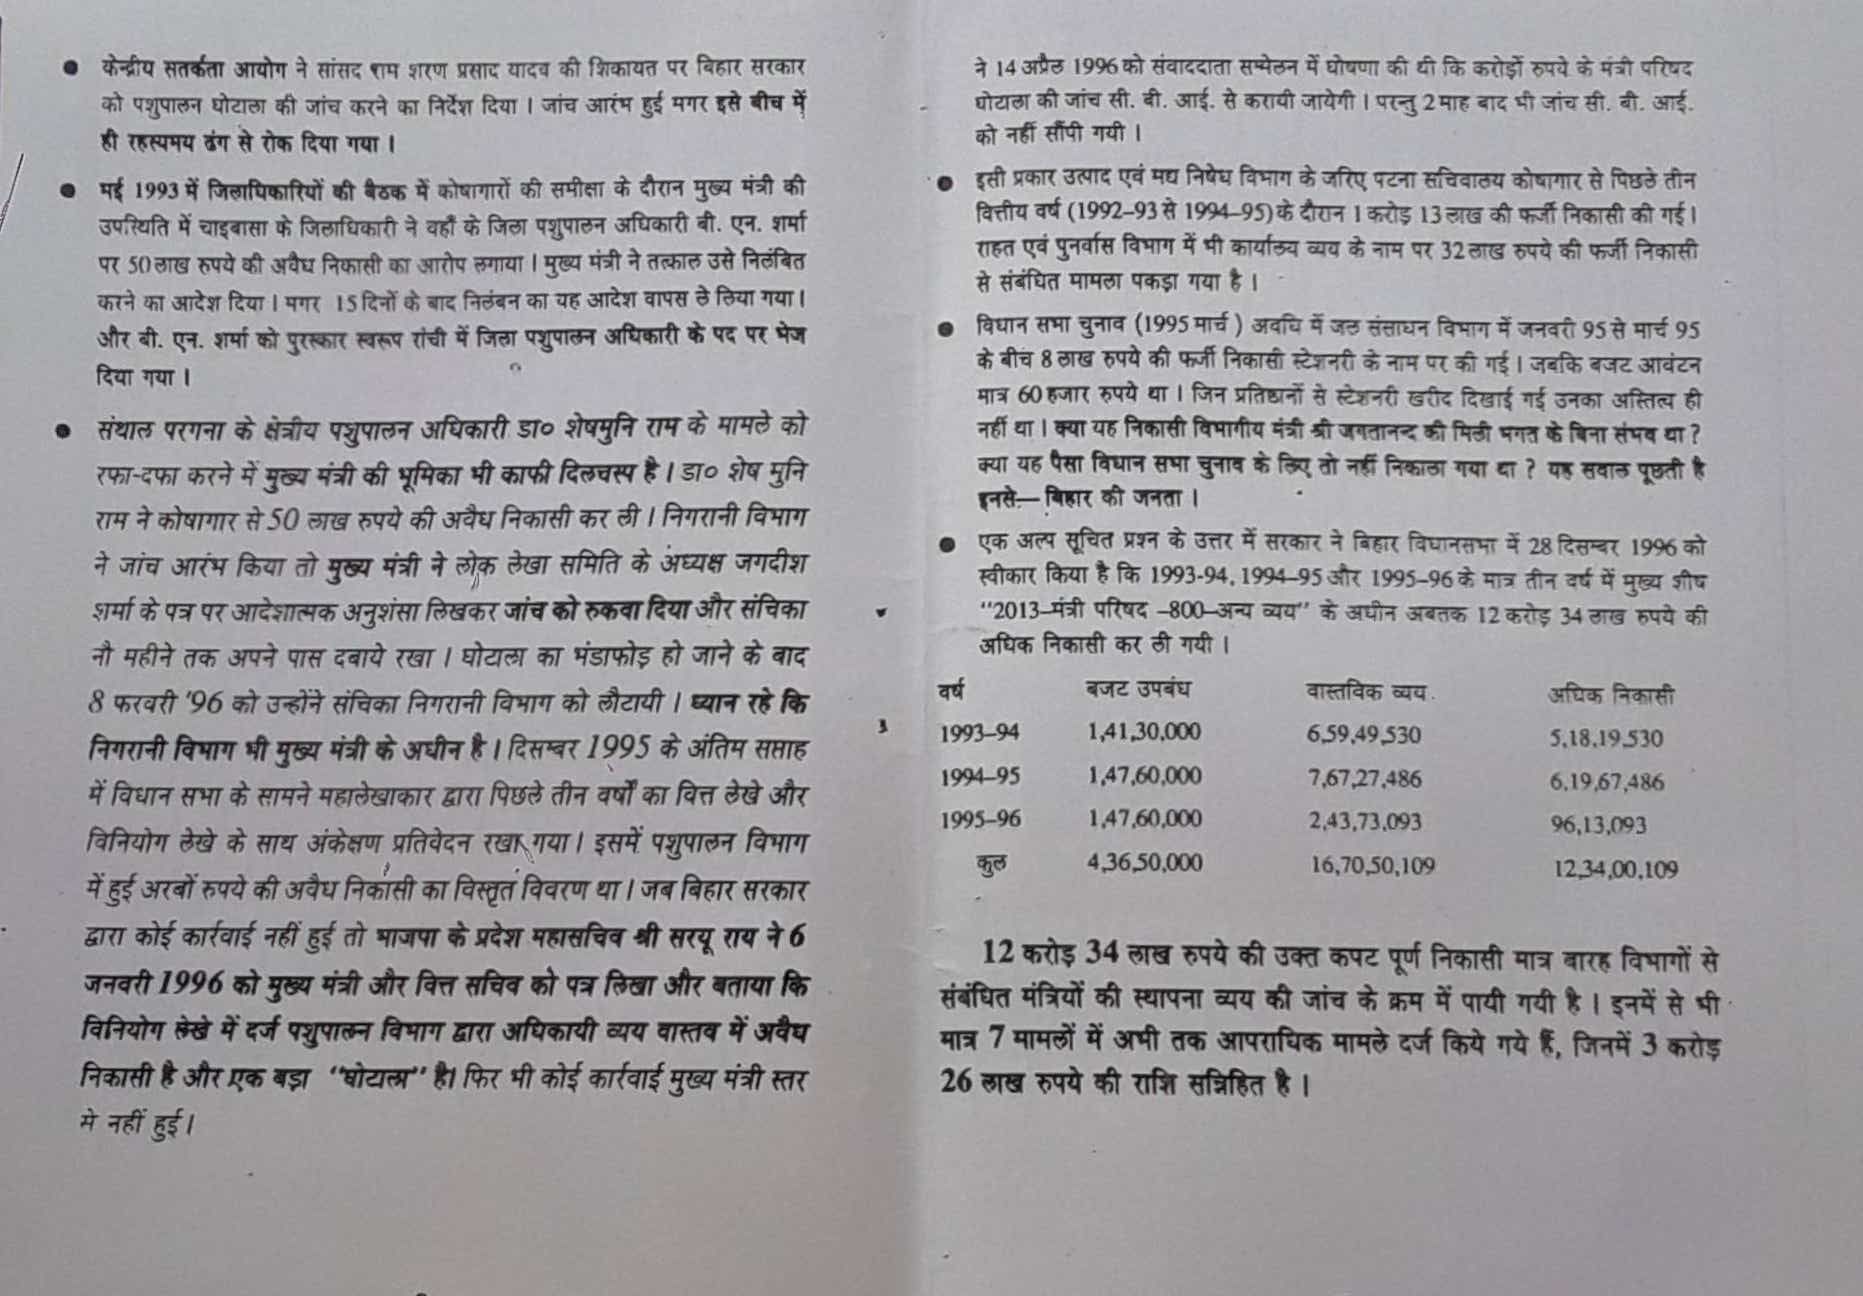 ● केन्द्रीय सतर्कता आयोग ने सांसद राम शरण प्रसाद यादव की शिकायत पर बिहार सरकार
को पशुपालन घोटाला की जांच करने का निर्देश दिया । जांच आरंभ हुई मगर इसे बीच में
ही रहस्यमय ढंग से रोक दिया गया ।
● मई 1993 में जिलाधिकारियों की बैठक में कोषागारों की समीक्षा के दौरान मुख्य मंत्री की
उपस्थिति में चाइबासा के जिलाधिकारी ने वहाँ के जिला पशुपालन अधिकारी बी. एन. शर्मा
पर 50 लाख रुपये की अवैध निकासी का आरोप लगाया । मुख्य मंत्री ने तत्काल उसे निलंबित
करने का आदेश दिया । मगर 15 दिनों के बाद निलंबन का यह आदेश वापस ले लिया गया ।
और बी. एन. शर्मा को पुरस्कार स्वरूप रांची में जिला पशुपालन अधिकारी के पद पर भेज
दिया गया ।
● संथाल परगना के क्षेत्रीय पशुपालन अधिकारी डा० शेषमुनि राम के मामले को
रफा-दफा करने में मुख्य मंत्री की भूमिका भी काफी दिलचस्प है । डा० शेष मुनि
राम ने कोषागार से 50 लाख रुपये की अवैध निकासी कर ली । निगरानी विभाग
ने जांच आरंभ किया तो मुख्य मंत्री ने लोक लेखा समिति के अध्यक्ष जगदीश
शर्मा के पत्र पर आदेशात्मक अनुशंसा लिखकर जांच को रुकवा दिया और संचिका
नौ महीने तक अपने पास दबाये रखा । घोटाला का भंडाफोड़ हो जाने के बाद
8 फरवरी '96 को उन्होंने संचिका निगरानी विभाग को लौटायी । ध्यान रहे कि
निगरानी विभाग भी मुख्य मंत्री के अधीन है । दिसम्बर 1995 के अंतिम सप्ताह
में विधान सभा के सामने महालेखाकार द्वारा पिछले तीन वर्षों का वित्त लेखे और
विनियोग लेखे के साथ अंकेक्षण प्रतिवेदन रखा गया । इसमें पशुपालन विभाग
में हुई अरबों रुपये की अवैध निकासी का विस्तृत विवरण था । जब बिहार सरकार
द्वारा कोई कार्रवाई नहीं हुई तो भाजपा के प्रदेश महासचिव श्री सरयू राय ने 6
जनवरी 1996 को मुख्य मंत्री और वित्त सचिव को पत्र लिखा और बताया कि
विनियोग लेखे में दर्ज पशुपालन विभाग द्वारा अधिकायी व्यय वास्तव में अवैध
निकासी है और एक बड़ा "घोटाला" है। फिर भी कोई कार्रवाई मुख्य मंत्री स्तर
मे नहीं हुई ।
ने 14 अप्रैल 1996 को संवाददाता सम्मेलन में घोषणा की थी कि करोड़ों रुपये के मंत्री परिषद
घोटाला की जांच सी. बी. आई. से करायी जायेगी । परन्तु 2 माह बाद भी जांच सी. बी. आई.
को नहीं सौंपी गयी ।
● इसी प्रकार उत्पाद एवं मद्य निषेध विभाग के जरिए पटना सचिवालय कोषागार से पिछले तीन
वित्तीय वर्ष (1992–93 से 1994–95) के दौरान 1 करोड़ 13 लाख की फर्जी निकासी की गई ।
राहत एवं पुनर्वास विभाग में भी कार्यालय व्यय के नाम पर 32 लाख रुपये की फर्जी निकासी
से संबंधित मामला पकड़ा गया है ।
● विधान सभा चुनाव (1995 मार्च ) अवधि में जल संसाधन विभाग में जनवरी 95 से मार्च 95
के बीच 8 लाख रुपये की फर्जी निकासी स्टेशनरी के नाम पर की गई । जबकि बजट आवंटन
मात्र 60 हजार रुपये था । जिन प्रतिष्ठानों से स्टेशनरी खरीद दिखाई गई उनका अस्तित्व ही
नहीं था । क्या यह निकासी विभागीय मंत्री श्री जगतानन्द की मिली भगत के बिना संभव था ?
क्या यह पैसा विधान सभा चुनाव के लिए तो नहीं निकाला गया था ? यह सवाल पूछती है
इनसे— बिहार की जनता ।
● एक अल्प सूचित प्रश्न के उत्तर में सरकार ने बिहार विधानसभा में 28 दिसम्बर 1996 को
स्वीकार किया है कि 1993-94, 1994–95 और 1995–96 के मात्र तीन वर्ष में मुख्य शीष
"2013–मंत्री परिषद –800–अन्य व्यय" के अधीन अबतक 12 करोड़ 34 लाख रुपये की
अधिक निकासी कर ली गयी ।
वर्ष बजट उपबंध वास्तविक व्यय अधिक निकासी
1993–94 1,41,30,000 6,59,49,530 5,18,19,530
1994–95 1,47,60,000 7,67,27,486 6,19,67,486
1995–96 1,47,60,000 2,43,73,093 96,13,093
कुल 4,36,50,000 16,70,50,109 12,34,00,109
12 करोड़ 34 लाख रुपये की उक्त कपट पूर्ण निकासी मात्र बारह विभागों से
संबंधित मंत्रियों की स्थापना व्यय की जांच के क्रम में पायी गयी है । इनमें से भी
मात्र 7 मामलों में अभी तक आपराधिक मामले दर्ज किये गये हैं, जिनमें 3 करोड़
26 लाख रुपये की राशि सन्निहित है ।